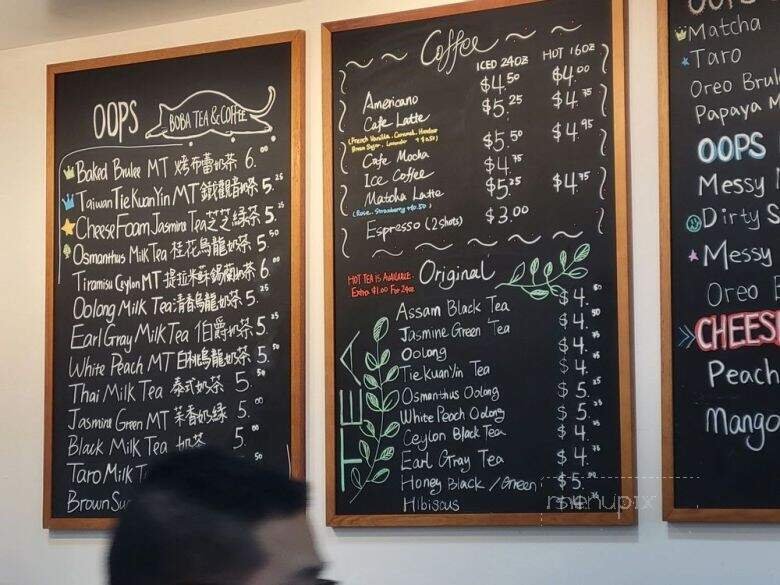 OOPS
BOBA TEA & COFFEE
Baked Brulee MT 烤布蕾奶茶 6.00
Taiwan Tie Kuan Yin MT 鐵觀音奶茶 5.25
Cheese Foam Jasmine Tea 芝芝綠茶 5.25
Osmanthus Milk Tea 桂花烏龍奶茶 5.50
Tiramisu Ceylon MT 提拉米蘇錫蘭奶茶 6.00
Oolong Milk Tea 清香烏龍奶茶 5.25
Earl Gray Milk Tea 伯爵奶茶 5.25
White Peach MT 白桃烏龍奶茶 5.50
Thai Milk Tea 泰式奶茶 5.50
Jasmine Green MT 茉香奶綠 5.00
Black Milk Tea 奶茶 5.00
Taro Milk T 50
Brown Su
Coffee
ICED 24oz HOT 16oz
Americano $4.50 $4.00
Cafe Latte $5.25 $4.75
(French Vanilla. Caramel. Hazelnut
Brown Sugar. Lavender +0.50)
Cafe Mocha $5.50 $4.95
Ice Coffee $4.75
Matcha Latte $5.25 $4.75
(Rose. Strawberry +0.50)
Espresso (2 shots) $3.00
Original
HOT TEA IS AVAILABLE.
Extra $1.00 For 24oz
TEA
Assam Black Tea $4.50
Jasmine Green Tea $4.50
Oolong $4.
Tie Kuan Yin Tea $4.
Osmanthus Oolong $5.
White Peach Oolong $5.
Ceylon Black Tea $4.
Earl Gray Tea $4.
Honey Black / Green $5.00
Hibiscus $4.
menupix
Matcha
Taro
Oreo Brul
Papaya M
OOPS
Messy
Dirty S
Messy
Oreo
CHEES
Peach
Mango